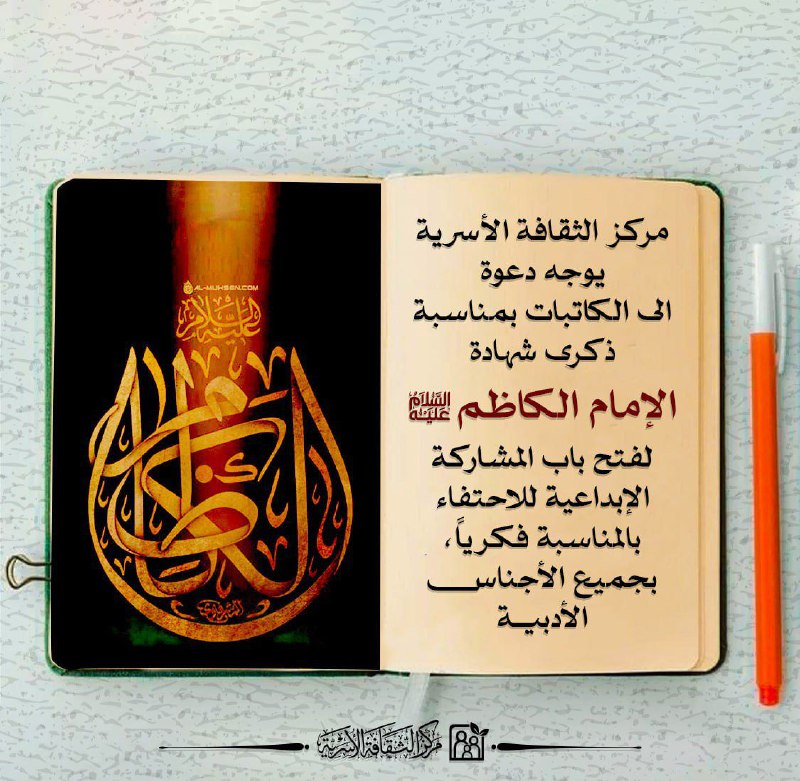 مركز الثقافة الأسرية
يوجه دعوة
الى الكاتبات بمناسبة
ذكرى شهادة
الإمام الكاظم عليه السلام
لفتح باب المشاركة
الإبداعية للاحتفاء
بالمناسبة فكرياً،
بجميع الأجناس
الأدبية
AL-MUHSEN.COM
عليه السلام
الكاظم
مركز الثقافة الأسرية